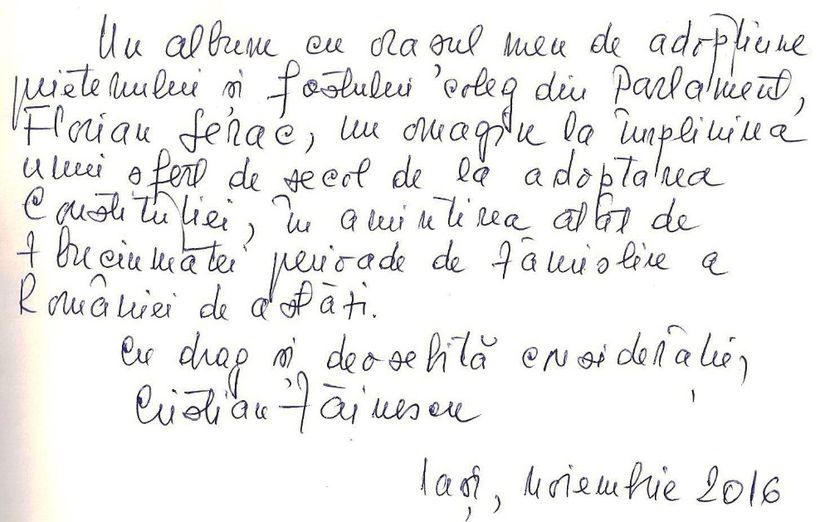 Un album cu orașul meu de adopțiune
prietenului și fostului coleg din Parlament,
Florian Șerac, un omagiu la împlinirea
unui sfert de secol de la adoptarea
Constituției, în amintirea atât de
zbuciumatei perioade de făurire a
României de astăzi.
Cu drag și deosebită considerație,
Cristian
Iași, Noiembrie 2016